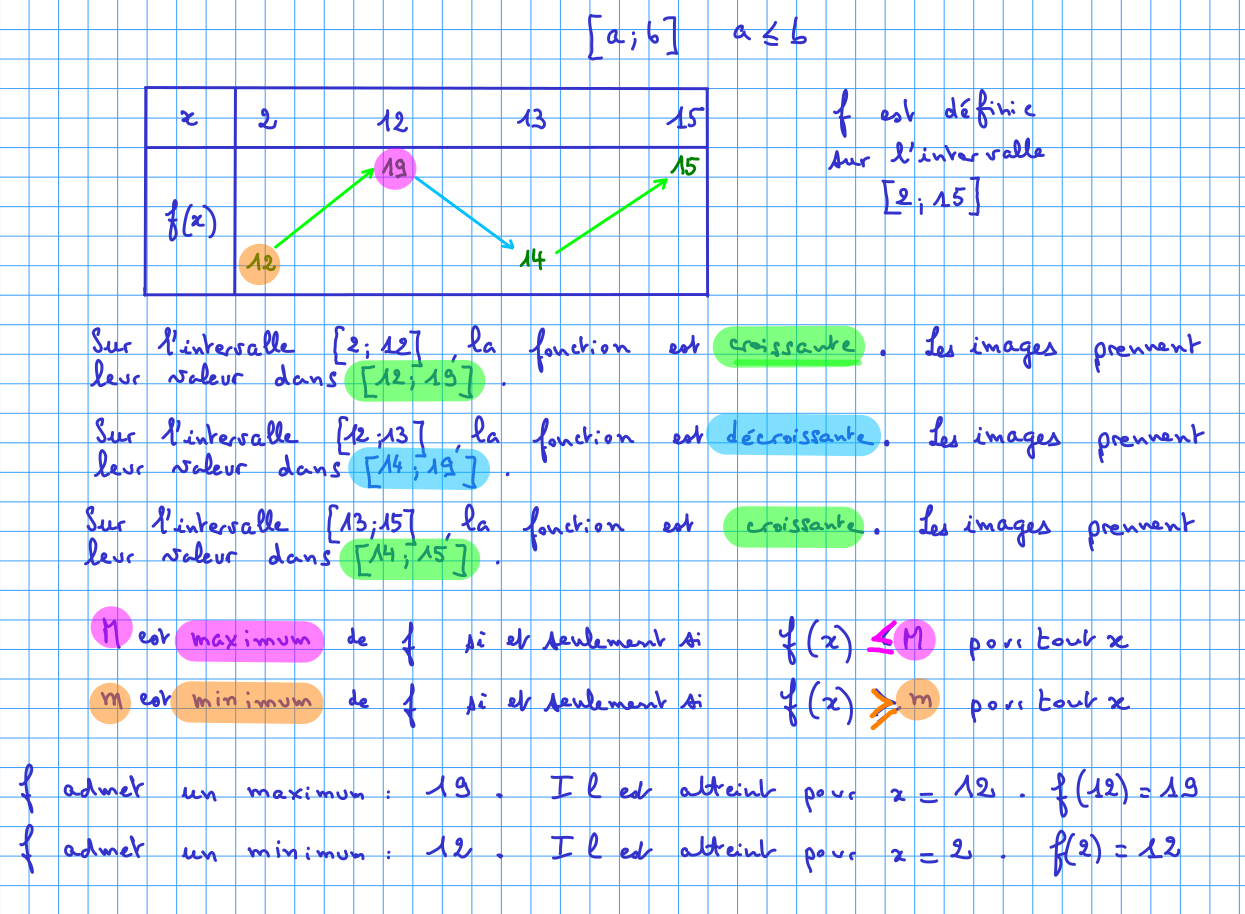 [a ; b] a ≤ b
x 2 12 13 15
f est définie
19 15
sur l'intervalle
[2 ; 15]
f(x)
12 14
Sur l'intervalle [2 ; 12], la fonction est croissante. Les images prennent
leur valeur dans [12 ; 19].
Sur l'intervalle [12 ; 13], la fonction est décroissante. Les images prennent
leur valeur dans [14 ; 19].
Sur l'intervalle [13 ; 15], la fonction est croissante. Les images prennent
leur valeur dans [14 ; 15].
M est maximum de f si et seulement si f(x) ≤ M pour tout x
m est minimum de f si et seulement si f(x) ≥ m pour tout x
f admet un maximum : 19. Il est atteint pour x = 12. f(12) = 19
f admet un minimum : 12. Il est atteint pour x = 2. f(2) = 12